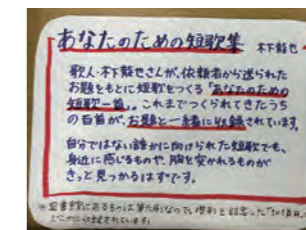 あなたのための短歌集 木下龍也
歌人・木下龍也さんが、依頼者から送られた
お題をもとに短歌をつくる「あなたのための
短歌一首」。これまでつくられてきたうち
の百首が、お題と一緒に収録されています。
自分ではない誰かに向けられた短歌でも、
身近に感じるものや、胸を突かれるものが
きっと見つかるはずです。